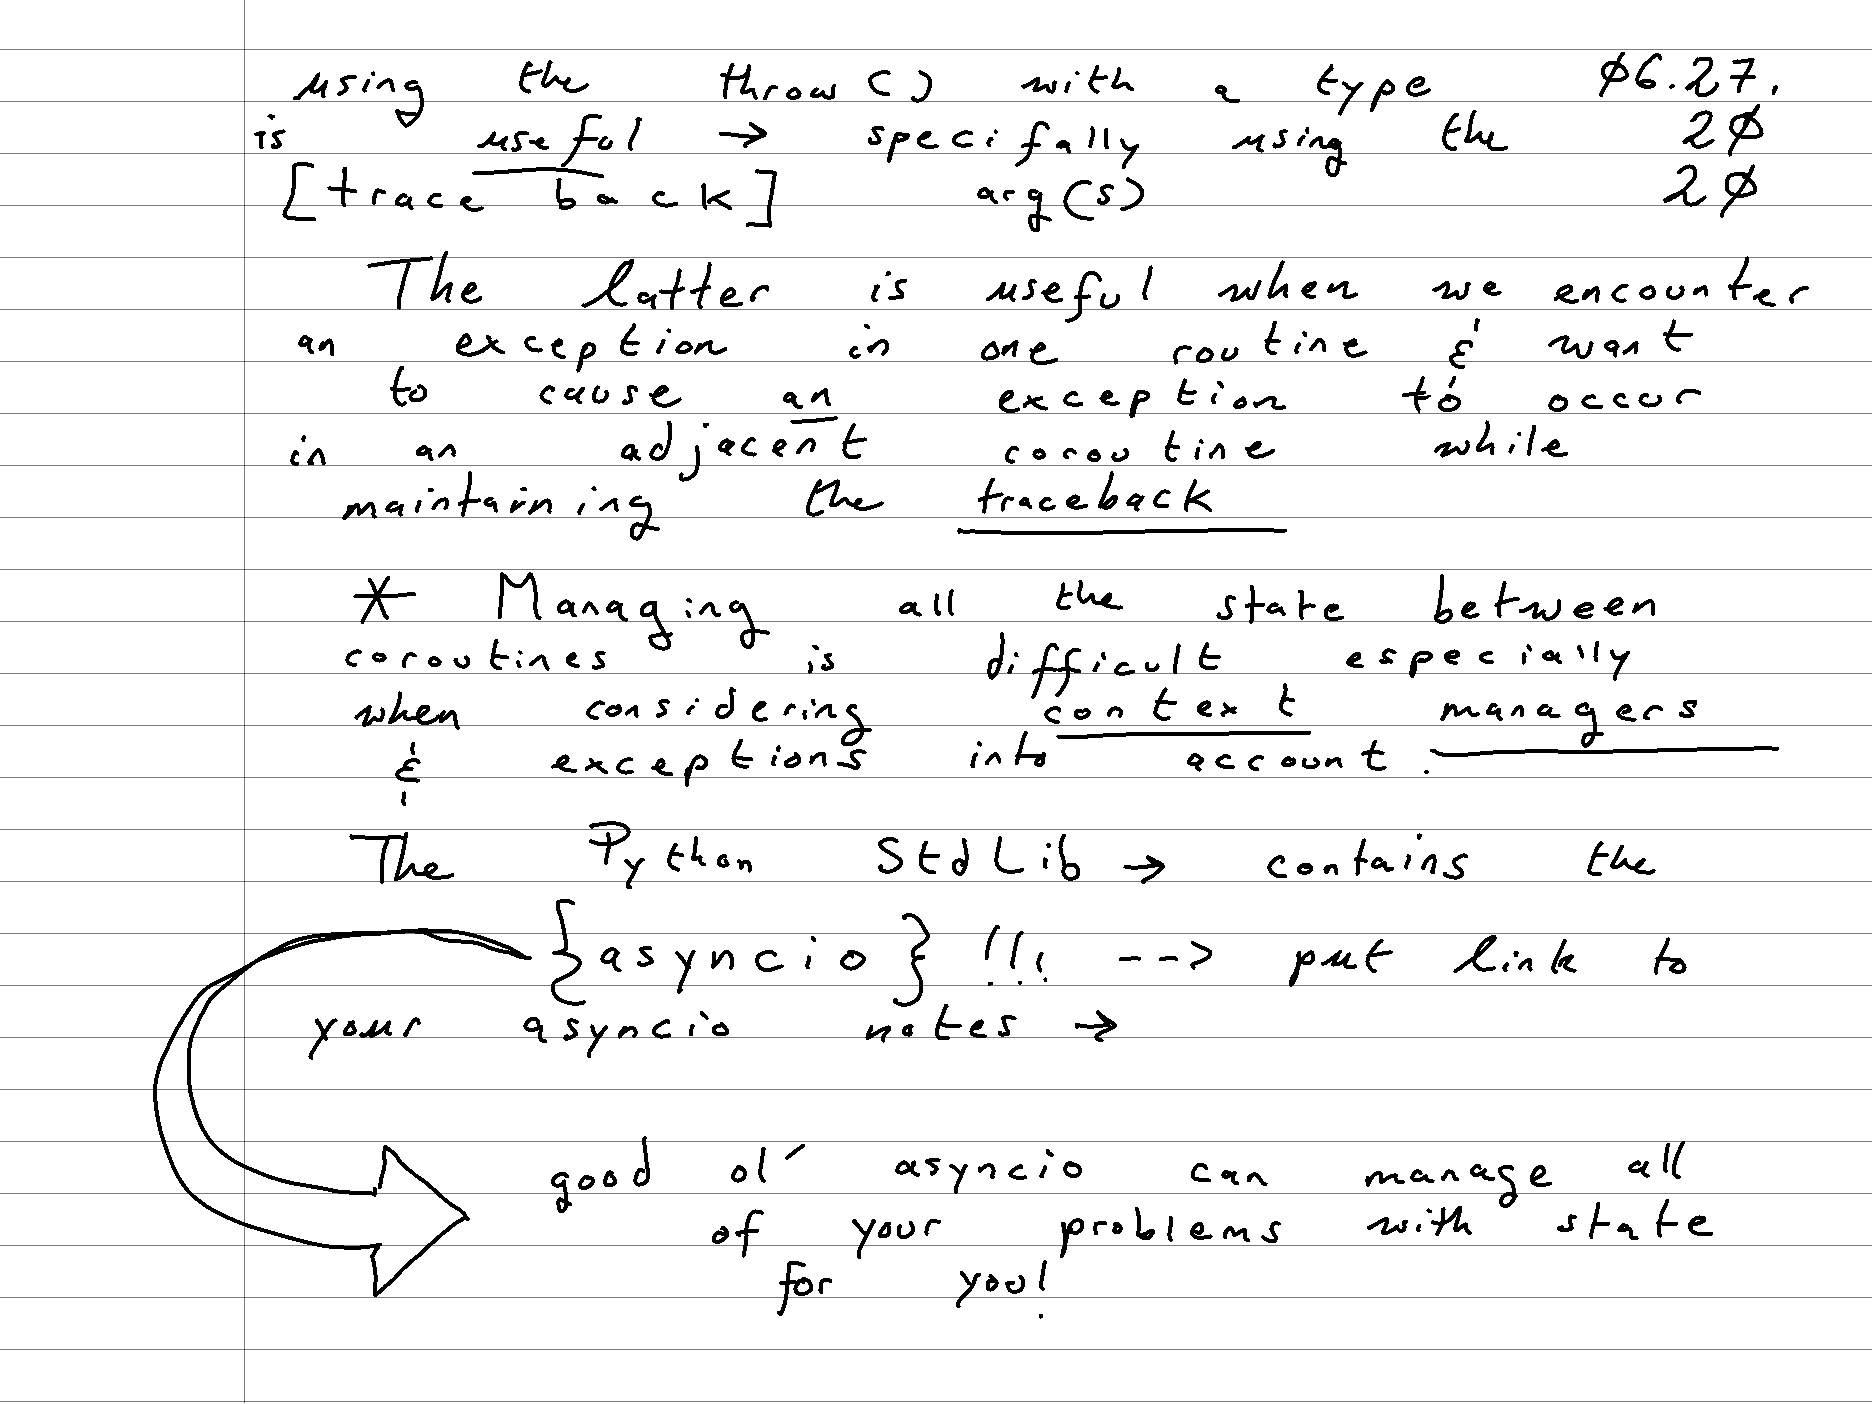 using the throw() with a type Ø6.27.
is useful → specifally using the 2Ø
[traceback] arg(s) 2Ø
The latter is useful when we encounter
an exception in one routine & want
to cause an exception to occur
in an adjacent coroutine while
maintaining the traceback
* Managing all the state between
coroutines is difficult especially
when considering context managers
& exceptions into account.
The Python StdLib → contains the
{asyncio} !!! --> put link to
your asyncio notes →
good ol' asyncio can manage all
of your problems with state
for you!